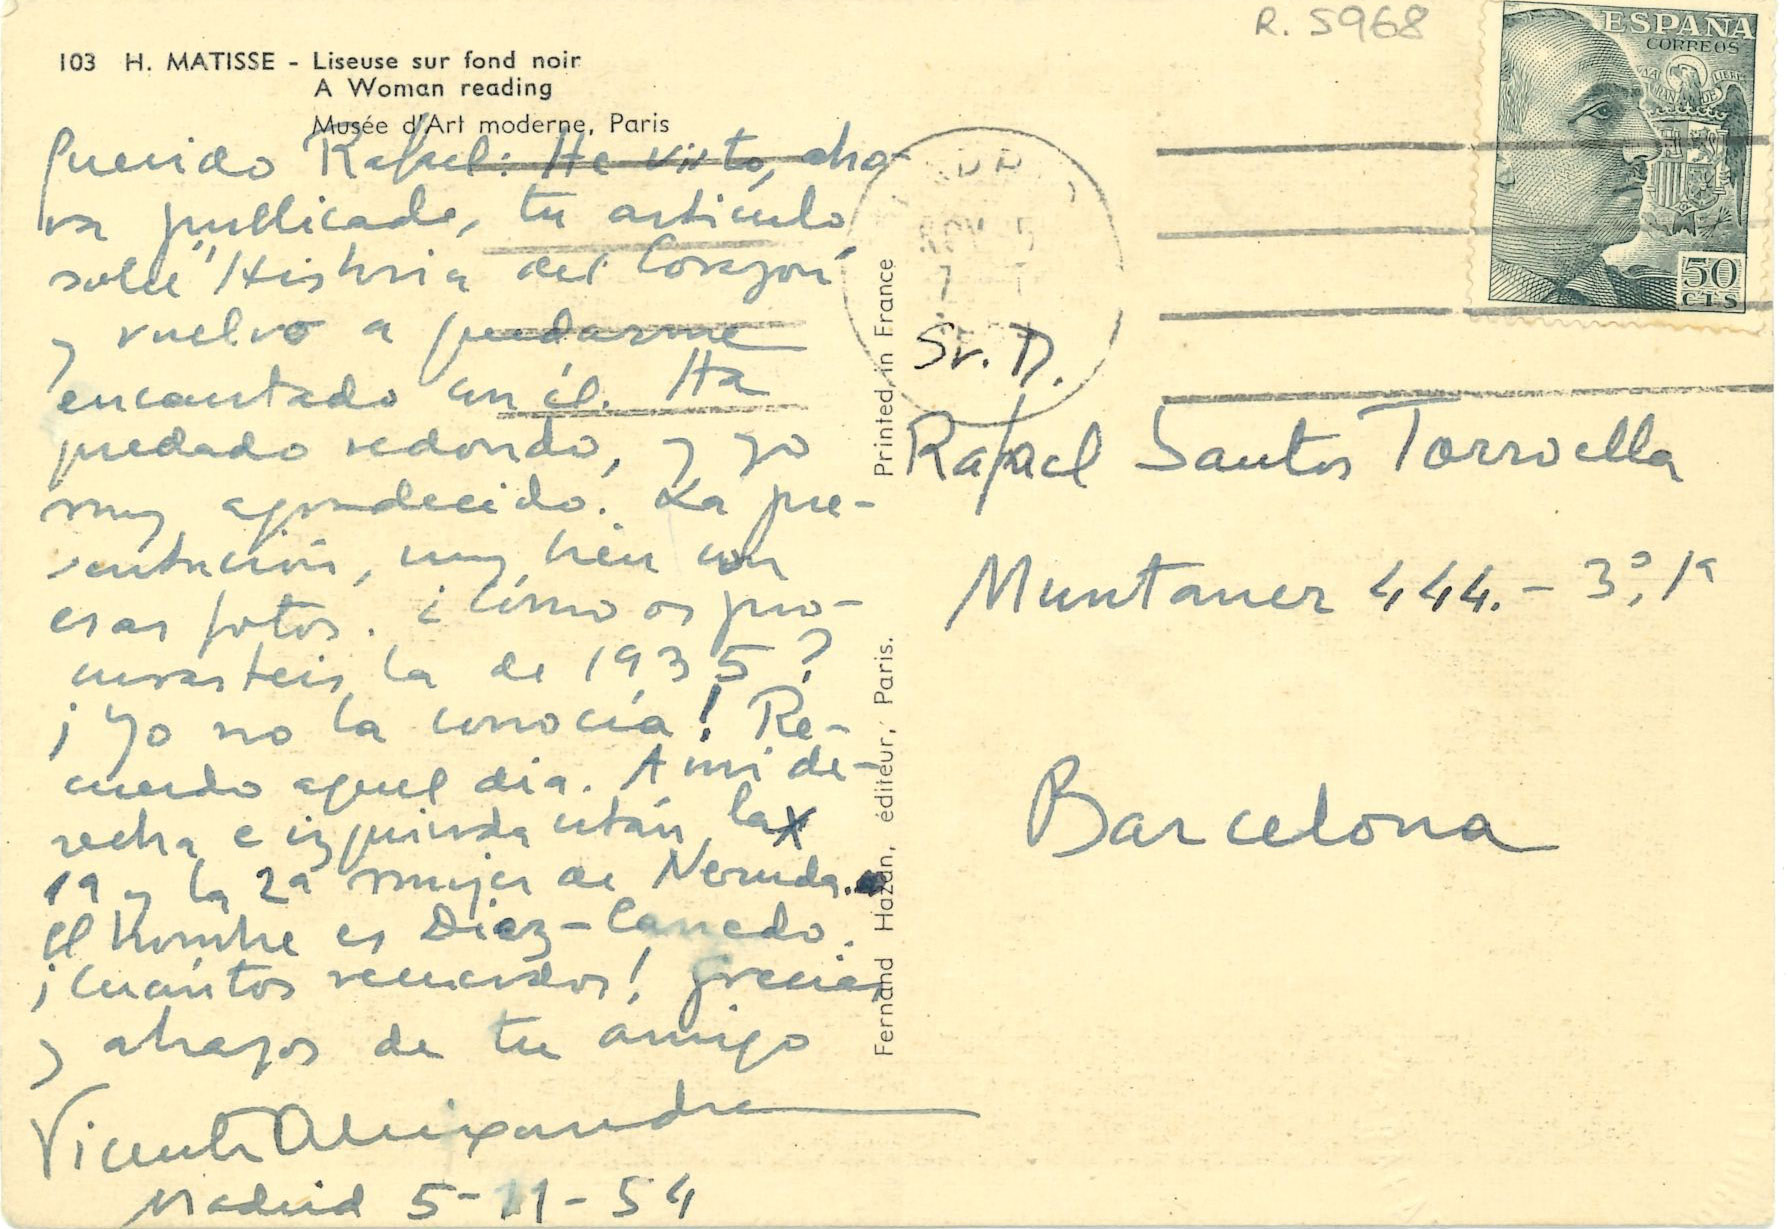 R. 5968
ESPAÑA
CORREOS
50
CTS
103 H. MATISSE - Liseuse sur fond noir
A Woman reading
Musée d'Art moderne, Paris
Querido Rafael: He visto, aho-
ra publicado, tu artículo
sobre "Historia del Corazón"
y vuelvo a quedarme
encantado con él. Ha
quedado redondo, y yo
muy agradecido. La pre-
sentación, muy bien con
esas fotos. ¿Cómo os pro-
curasteis la de 1935?
¡Yo no la conocía! Re-
cuerdo aquel día. A mi de-
recha e izquierda están la
1ª y la 2ª mujer de Neruda.
El hombre es Díez-Canedo.
¡Cuántos recuerdos! Gracias
y abrazos de tu amigo
Vicente Aleixandre
Madrid 5-11-54
Printed in France
Fernand Hazan, éditeur, Paris.
Sr. D.
Rafael Santos Torroella
Muntaner 444.- 3º, 1ª
Barcelona